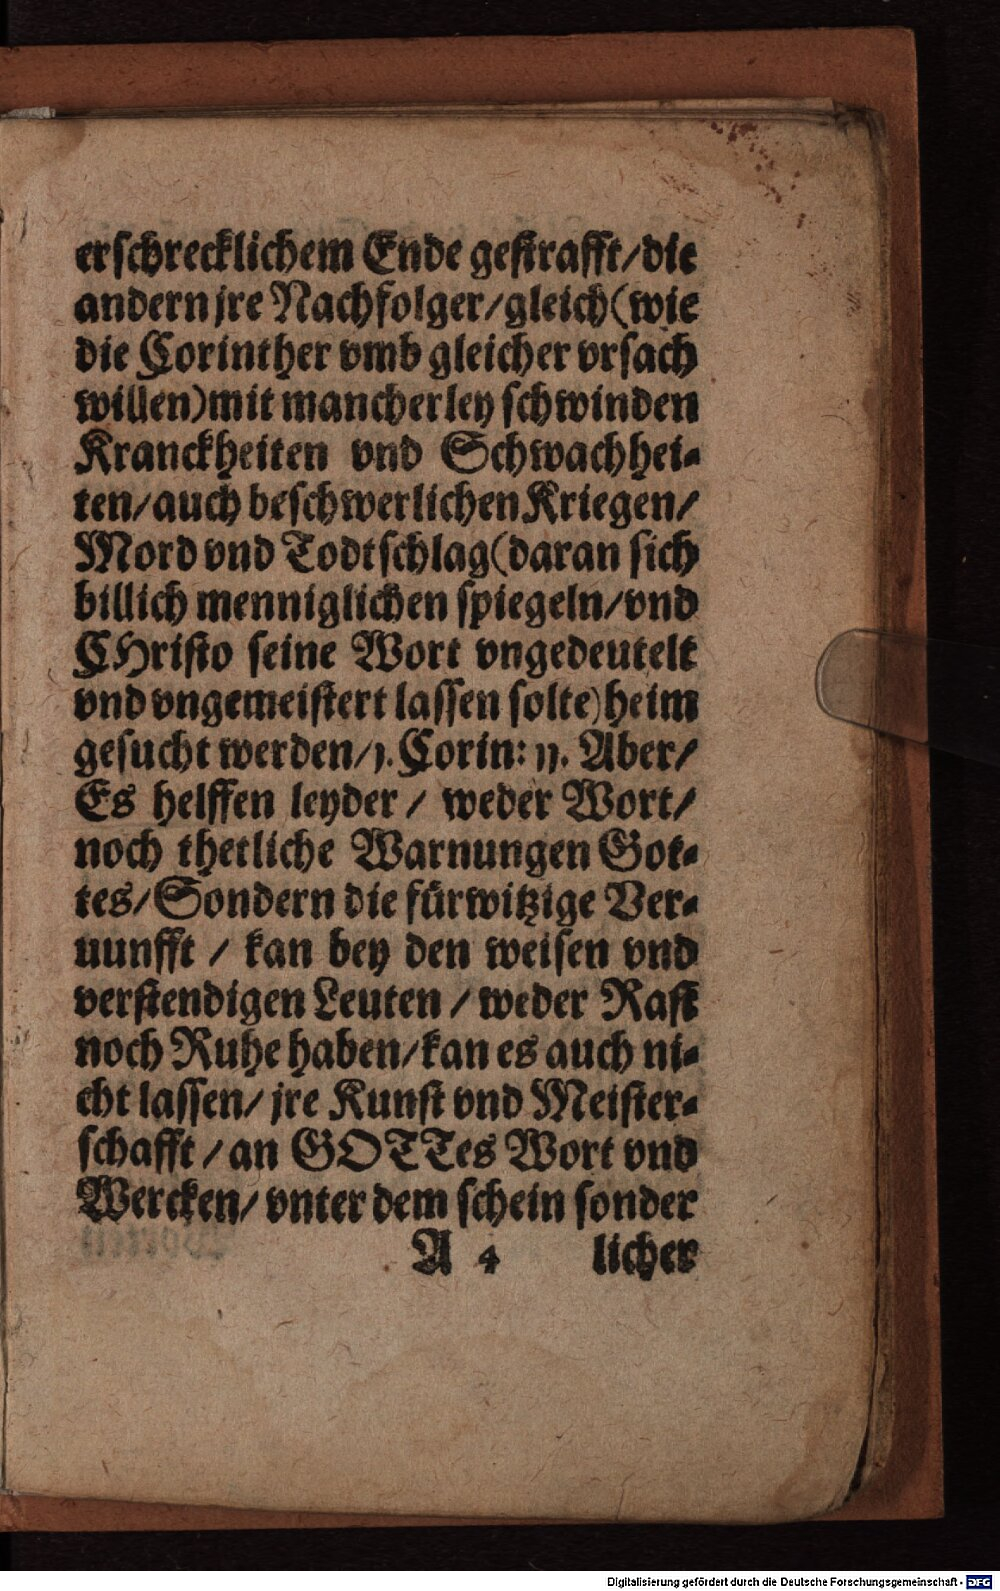 erschrecklichem Ende gestrafft/die
andern jre Nachfolger/gleich(wie
die Corinther vmb gleicher vrsach
willen)mit mancherley schwinden
Kranckheiten vnd Schwachhei-
ten/auch beschwerlichen Kriegen/
Mord vnd Todtschlag(daran sich
billich menniglichen spiegeln/vnd
CHristo seine Wort vngedeutelt
vnd vngemeistert lassen solte)heim
gesucht werden/1.Corin: 11. Aber/
Es helffen leyder / weder Wort/
noch thetliche Warnungen Got-
tes/Sondern die fürwitzige Ver-
uunfft / kan bey den weisen vnd
verstendigen Leuten / weder Rast
noch Ruhe haben/kan es auch ni-
cht lassen/ jre Kunst vnd Meister-
schafft / an GOTTes Wort vnd
Wercken/ vnter dem schein sonder
A 4 licher
Digitalisierung gefördert durch die Deutsche Forschungsgemeinschaft - DFG